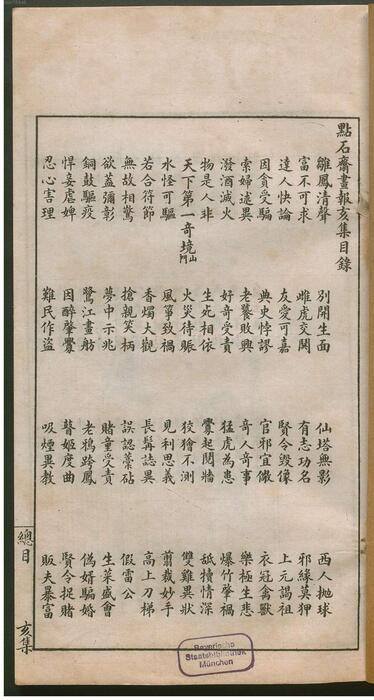 點石齋畫報亥集目錄
雛鳳清聲 別開生面 仙塔無影 西人拋球
富不可求 雌虎交鬨 有志功名 邪緣莫狎
達人快論 友愛可嘉 賢令毀像 上元謁祖
因貪受騙 典史悖謬 官邪宜儆 衣冠禽獸
索婦述異 老饕敗興 奇人奇事 樂極生悲
潑酒滅火 好奇受責 猛虎為患 爆竹肇禍
物是人非 生死相依 釁起鬩牆 舐犢情深
天下第一奇境山門 火災待賑 狡獪不測 雙雞異狀
水怪可驅 風箏致禍 見利思義 翦裁妙手
若合符節 香燭大觀 長髯誌異 高上刀梯
無故相驚 搶親笑柄 誤認藁砧 假雷公
欲蓋彌彰 夢中示兆 賭童受責 生菜盛會
銅鼓驅疫 鷺江畫舫 老鴉跨鳳 偽婿騙婚
悍妾虐婢 因醉肇釁 瞽姬度曲 賢令捉賭
忍心害理 難民作盜 吸煙異教 販夫暴富
總目 亥集
Bayerische
Staatsbibliothek
München